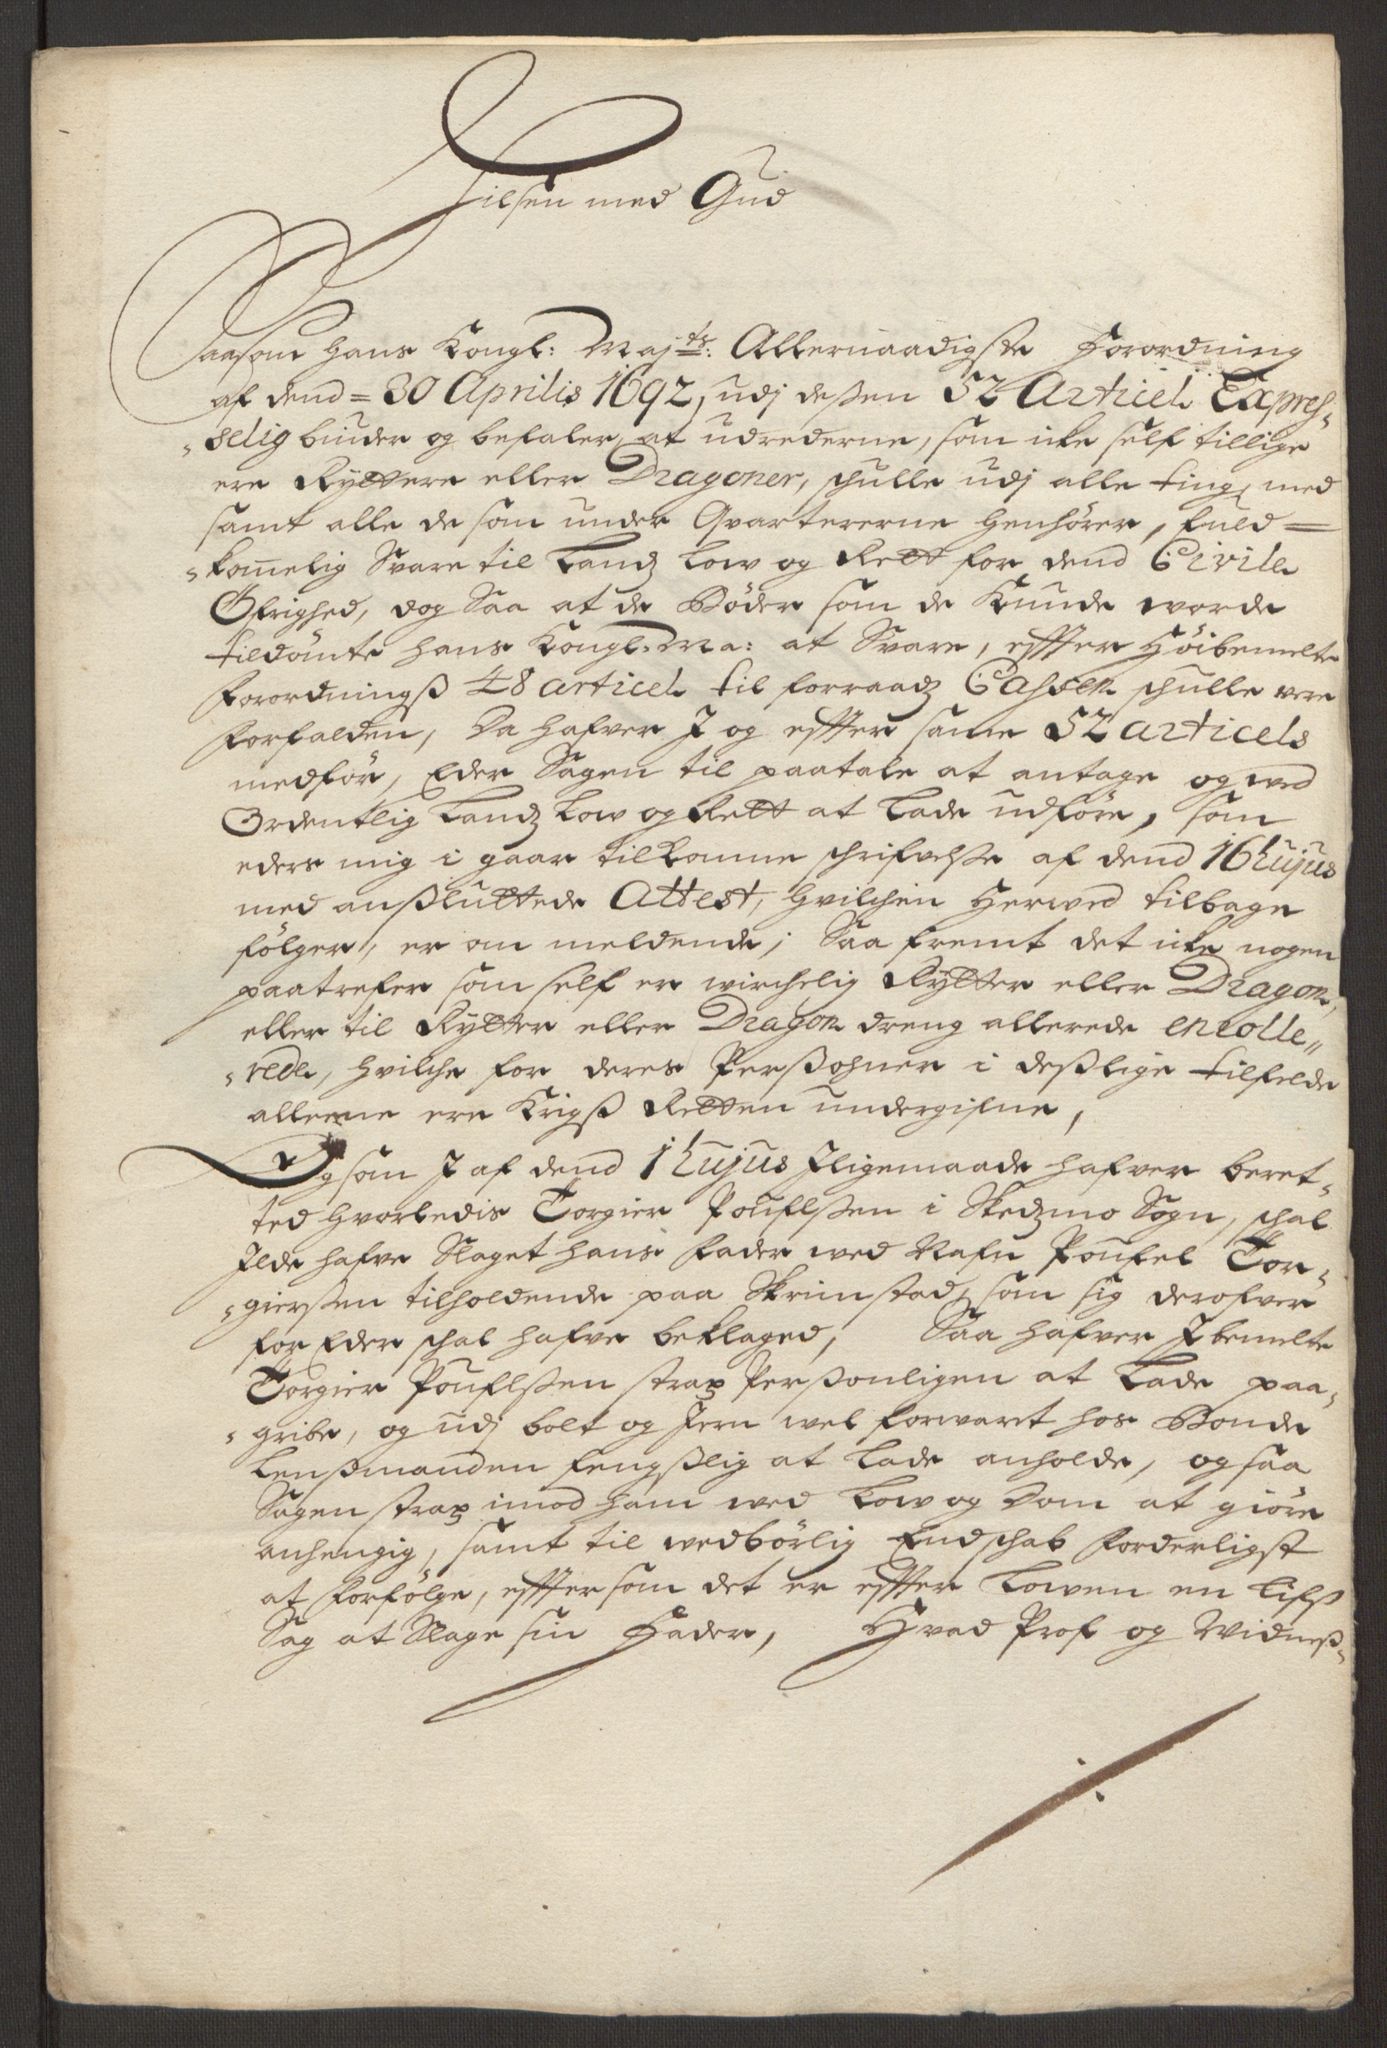 Hilsen med Gud
Saasom Hans Kongl: Maj:ts: Allernaadigste Forordning
af dend = 30 Aprilis 1692, udj deßen 52 Articel Expres-
-selig binder og befaler, at udrederne, som icke self tillige
ere Ryttere eller Dragoner, schulle udj alle ting, med
samt alle de som under Qvartererne henhörer, fuld=
=komelig Svare til Landz Low og Rett for dend Civile
Öfrighed, dog Saa at de Böder som de Kunde worde
tildömte hans Kongl: Ma: at Svare, effter Höibemelte
Forordningß 48 articel til forraadz Cassen schulle vere
forfalden, Da hafver J og effter same 52 articels
medför, Eder Sagen til paatale at antage og wed
Ordentlig Landz Low og Rett at Lade udföre, som
eders mig i gaar tilkomne schrifvelße af dend 16 hujus
med anßluttede Attest, hvilchen herwed tilbage
fölger, er om meldende; Saa fremt det icke nogen
paatrefer som self er wirchelig Rytter eller Dragon,
eller til Rytter eller Dragon dreng allerede enrolle-
-rede, hvilche for deres Perßohner i deßlige tilfelde
alleene ere Krigß Retten undergifne,
Og som J af dend 1 hujus Jligemaade hafver beret-
ted hvorledis Torgier Pouflßen i Skedzmo Sogn, schal
Jlde hafve Slaget hans fader wed Nafn Poufel Tor-
-gierßen tilholdende paa Skrimstad, som sig derofver
for Eder schal hafve beklaged, Saa hafver J bemelte
Torgier Pouflßen strax Perßonligen at Lade paa-
-gribe, og udj bolt og Jern wel forwaret hos Bonde
Lenßmanden fengßlig at Lade anholde, og saa
Sagen strax imod ham wed Low og Dom at giöre
anhengig, samt til wedbörlig Endschab forderligst
at forfölge, effter som det er effter Lowen en Lifß
Sag at Slage sin Fader, Hvad Prof og Widneß-